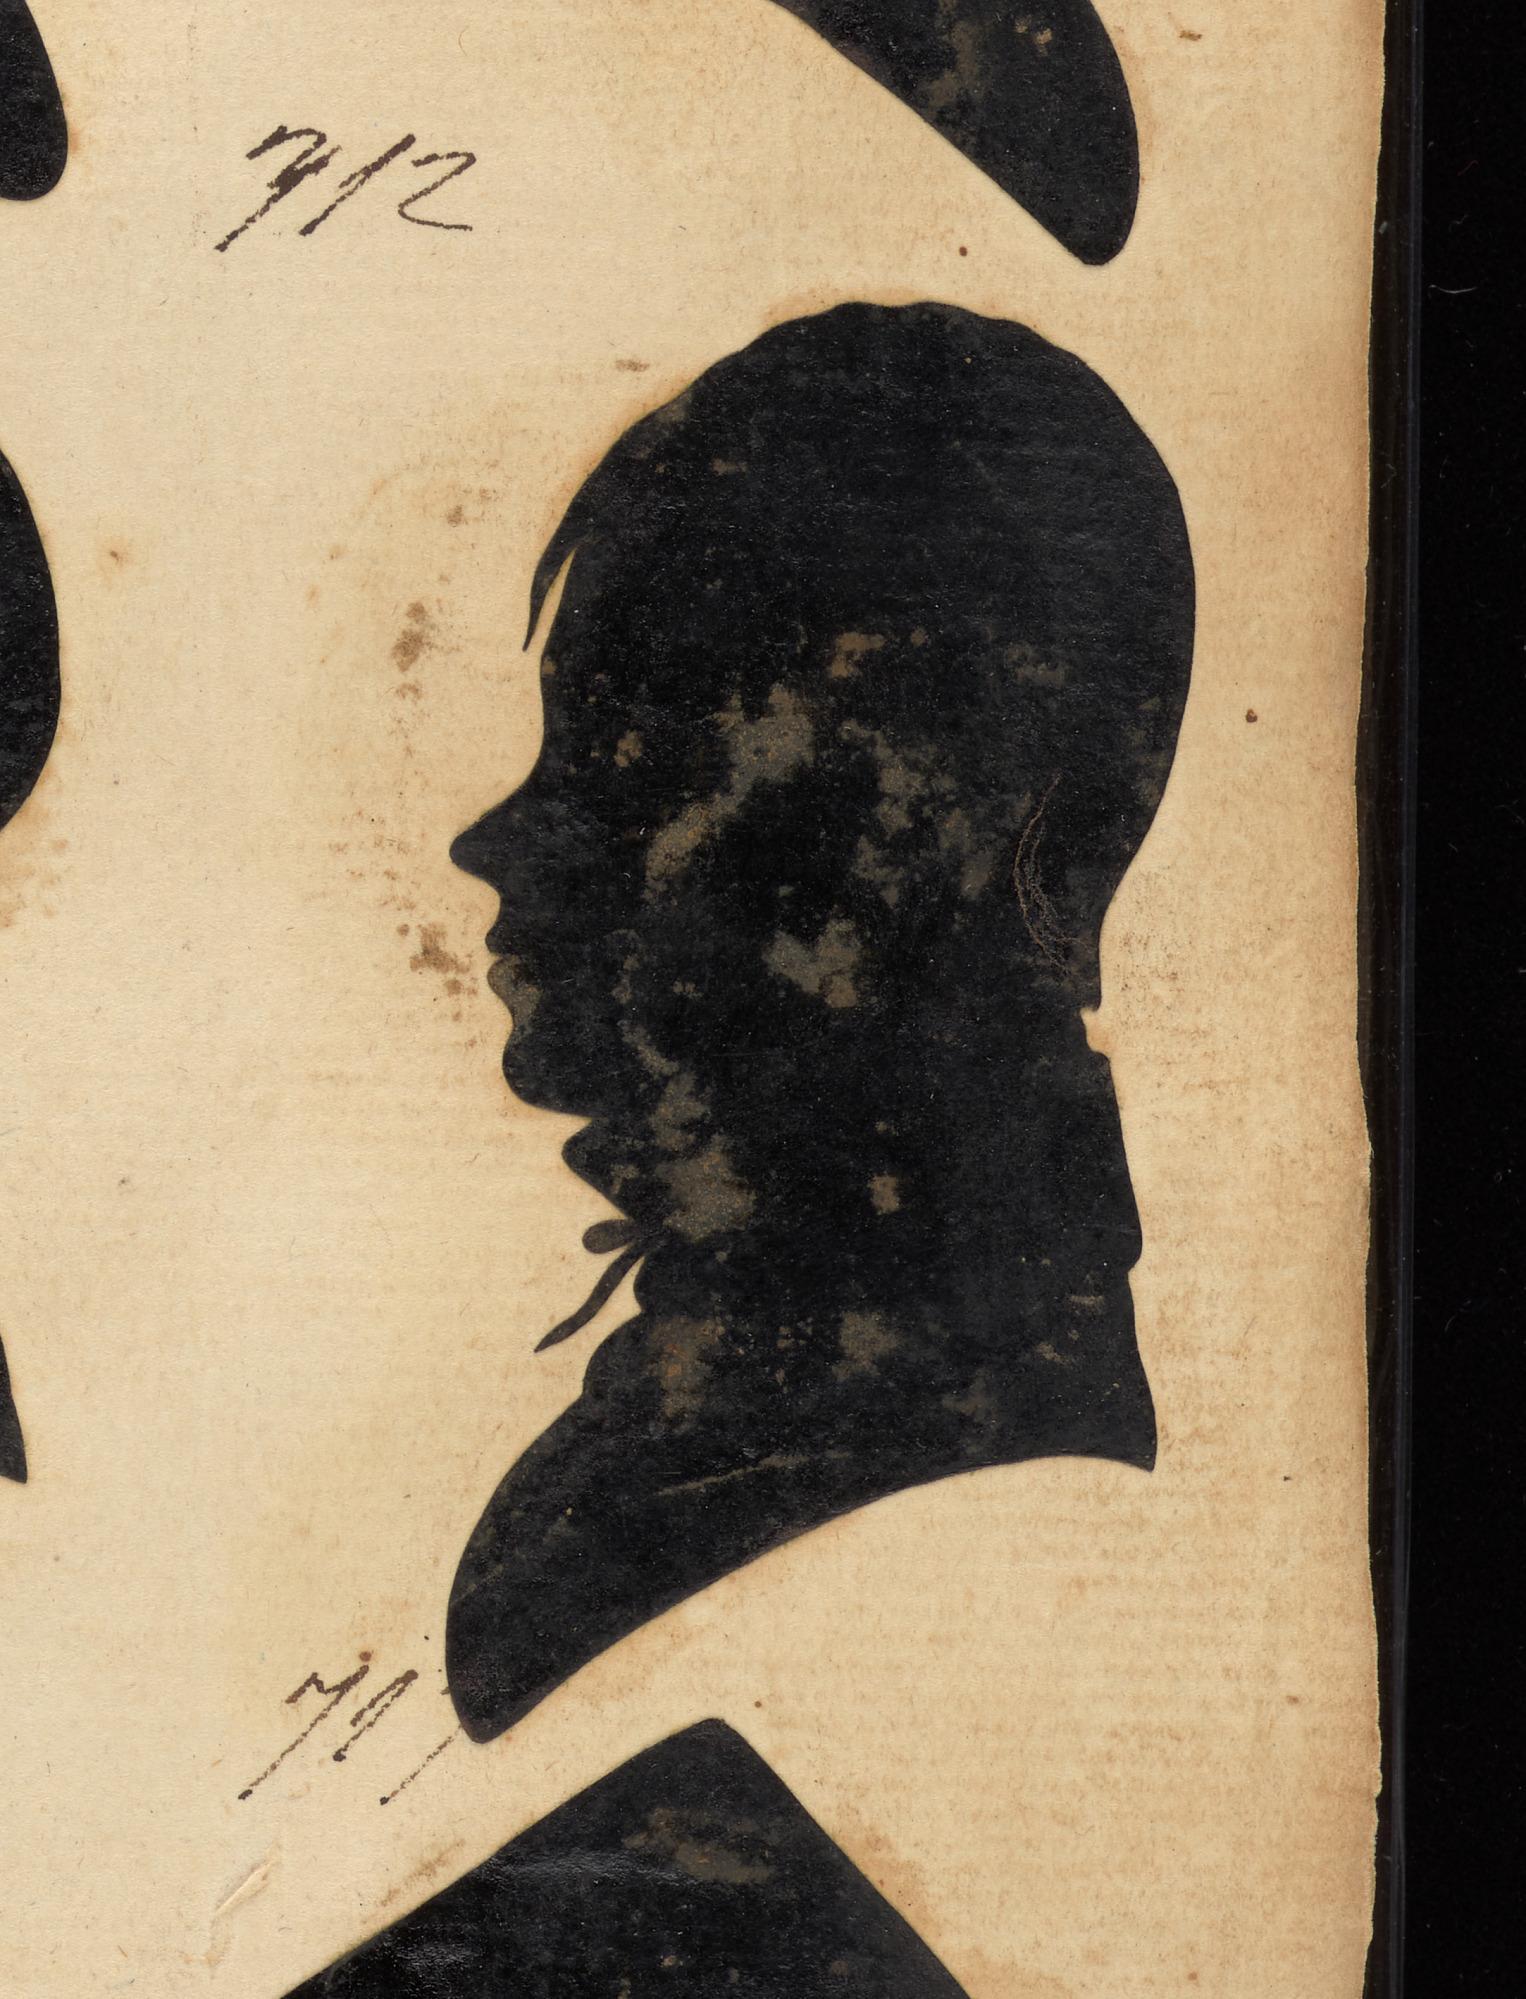 712
717